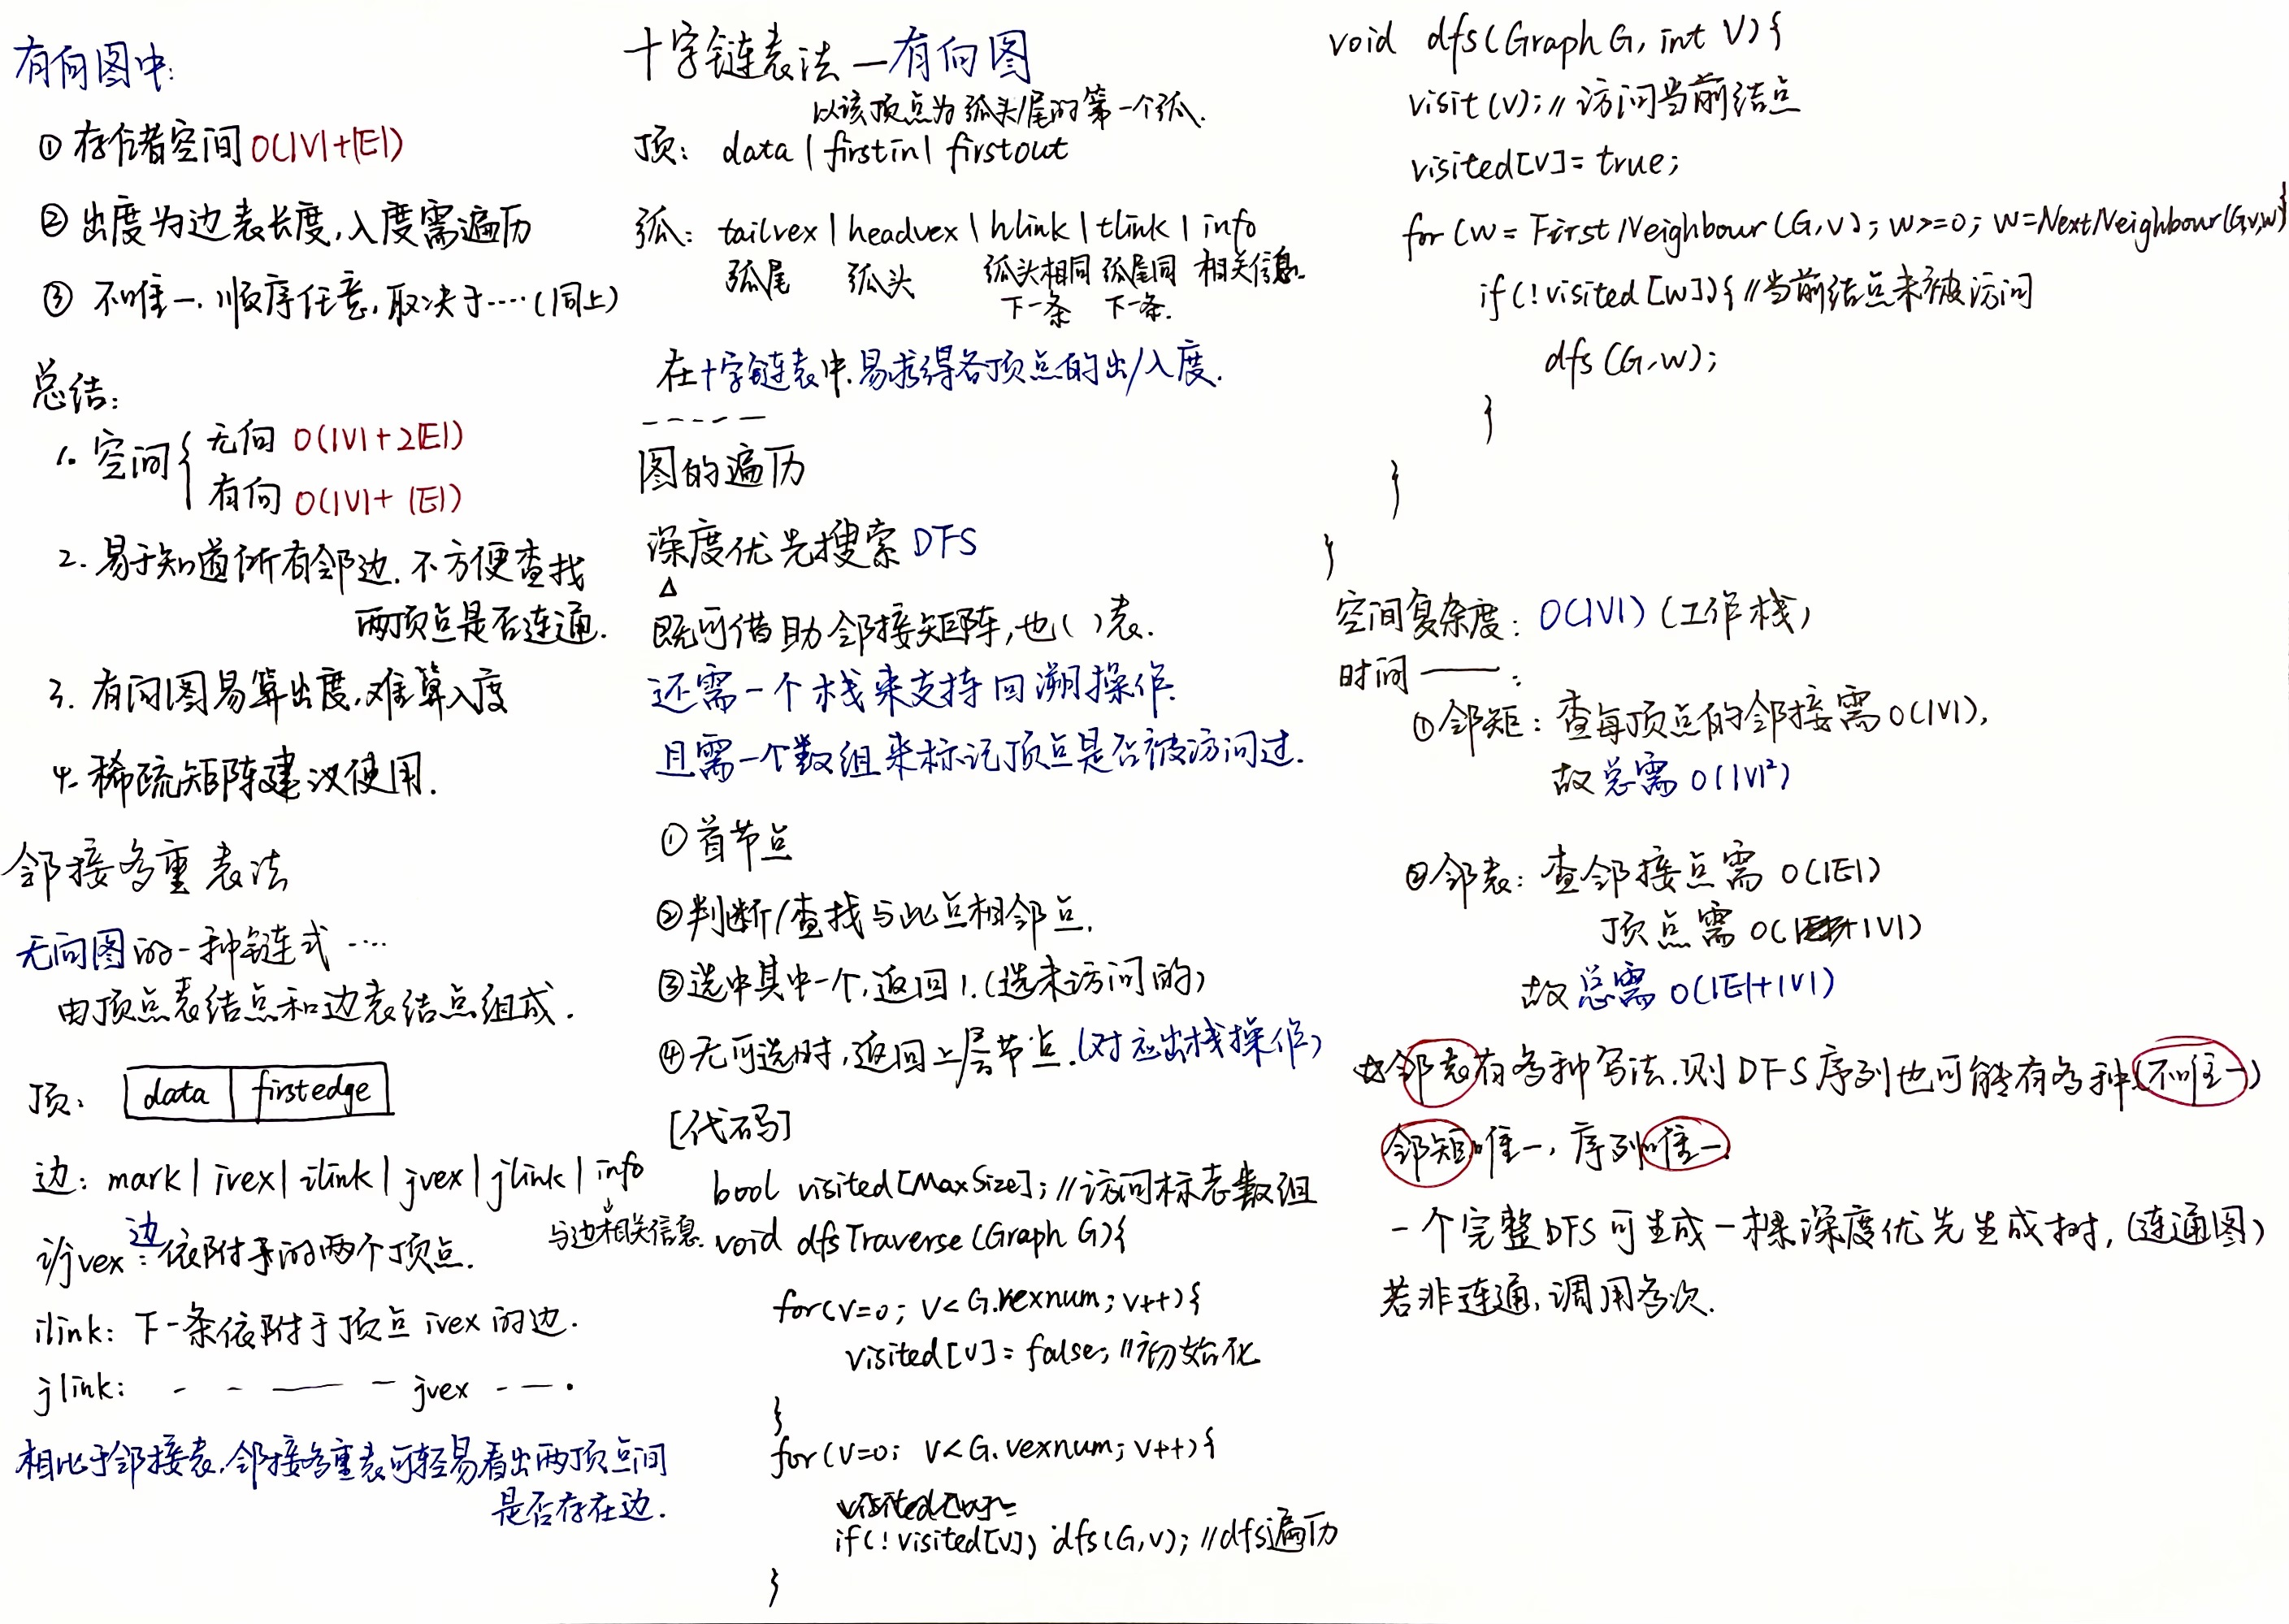 有向图中:
① 存储空间 O(|V|+|E|)
② 出度为边表长度,入度需遍历
③ 不唯一.顺序任意,取决于……(同上)
总结:
1. 空间{ 无向 O(|V|+2|E|)
有向 O(|V|+|E|)
2. 易于知道所有邻边.不方便查找
两顶点是否连通.
3. 有向图易算出度,难算入度
4. 稀疏矩阵建议使用.
邻接多重表法
无向图的一种链式 ....
由顶点表结点和边表结点组成.
顶: data | firstedge
边: mark | ivex | ilink | jvex | jlink | info
与边相关信息.
i/jvex: 边依附于的两个顶点.
ilink: 下一条依附于顶点 ivex 的边.
jlink: - - —— - jvex - — .
相比于邻接表,邻接多重表可轻易看出两顶点间
是否存在边.
十字链表法 — 有向图
以该顶点为弧头/尾的第一个弧.
顶: data | firstin | firstout
弧: tailvex | headvex | hlink | tlink | info
弧尾 弧头 弧头相同 弧尾同 相关信息.
下一条 下一条.
在十字链表中.易求得各顶点的出/入度.
-----
图的遍历
深度优先搜索 DFS
△
既可借助邻接矩阵,也( )表.
还需一个栈来支持回溯操作.
且需一个数组来标记顶点是否被访问过.
① 首节点
② 判断/查找与此点相邻点.
③ 选中其中一个,返回1.(选未访问的)
④ 无可选时,返回上层节点.(对应出栈操作)
[代码]
bool visited[MaxSize]; //访问标志数组
void dfsTraverse(Graph G){
for(v=0; v<G.vexnum; v++){
visited[v]=false; //初始化
}
for(v=0; v<G.vexnum; v++){
visited[v]=
if(!visited[v]) dfs(G,v); //dfs遍历
}
void dfs(Graph G, int V){
visit(v); // 访问当前结点
visited[v]= true;
for(w= FirstNeighbour(G,v); w>=0; w=NextNeighbour(G,v,w){
if(!visited[w]){ //当前结点未被访问
dfs(G,w);
}
}
}
空间复杂度: O(|V|) (工作栈)
时间 —— :
① 邻矩: 查每顶点的邻接需O(|V|),
故总需 O(|V|²)
② 邻表: 查邻接点需 O(|E|)
顶点需 O(|V|)
故总需 O(|E|+|V|)
邻表有多种写法.则DFS序列也可能有多种(不唯一)
邻矩唯一, 序列唯一.
一个完整DFS可生成一棵深度优先生成树,(连通图)
若非连通,调用多次.